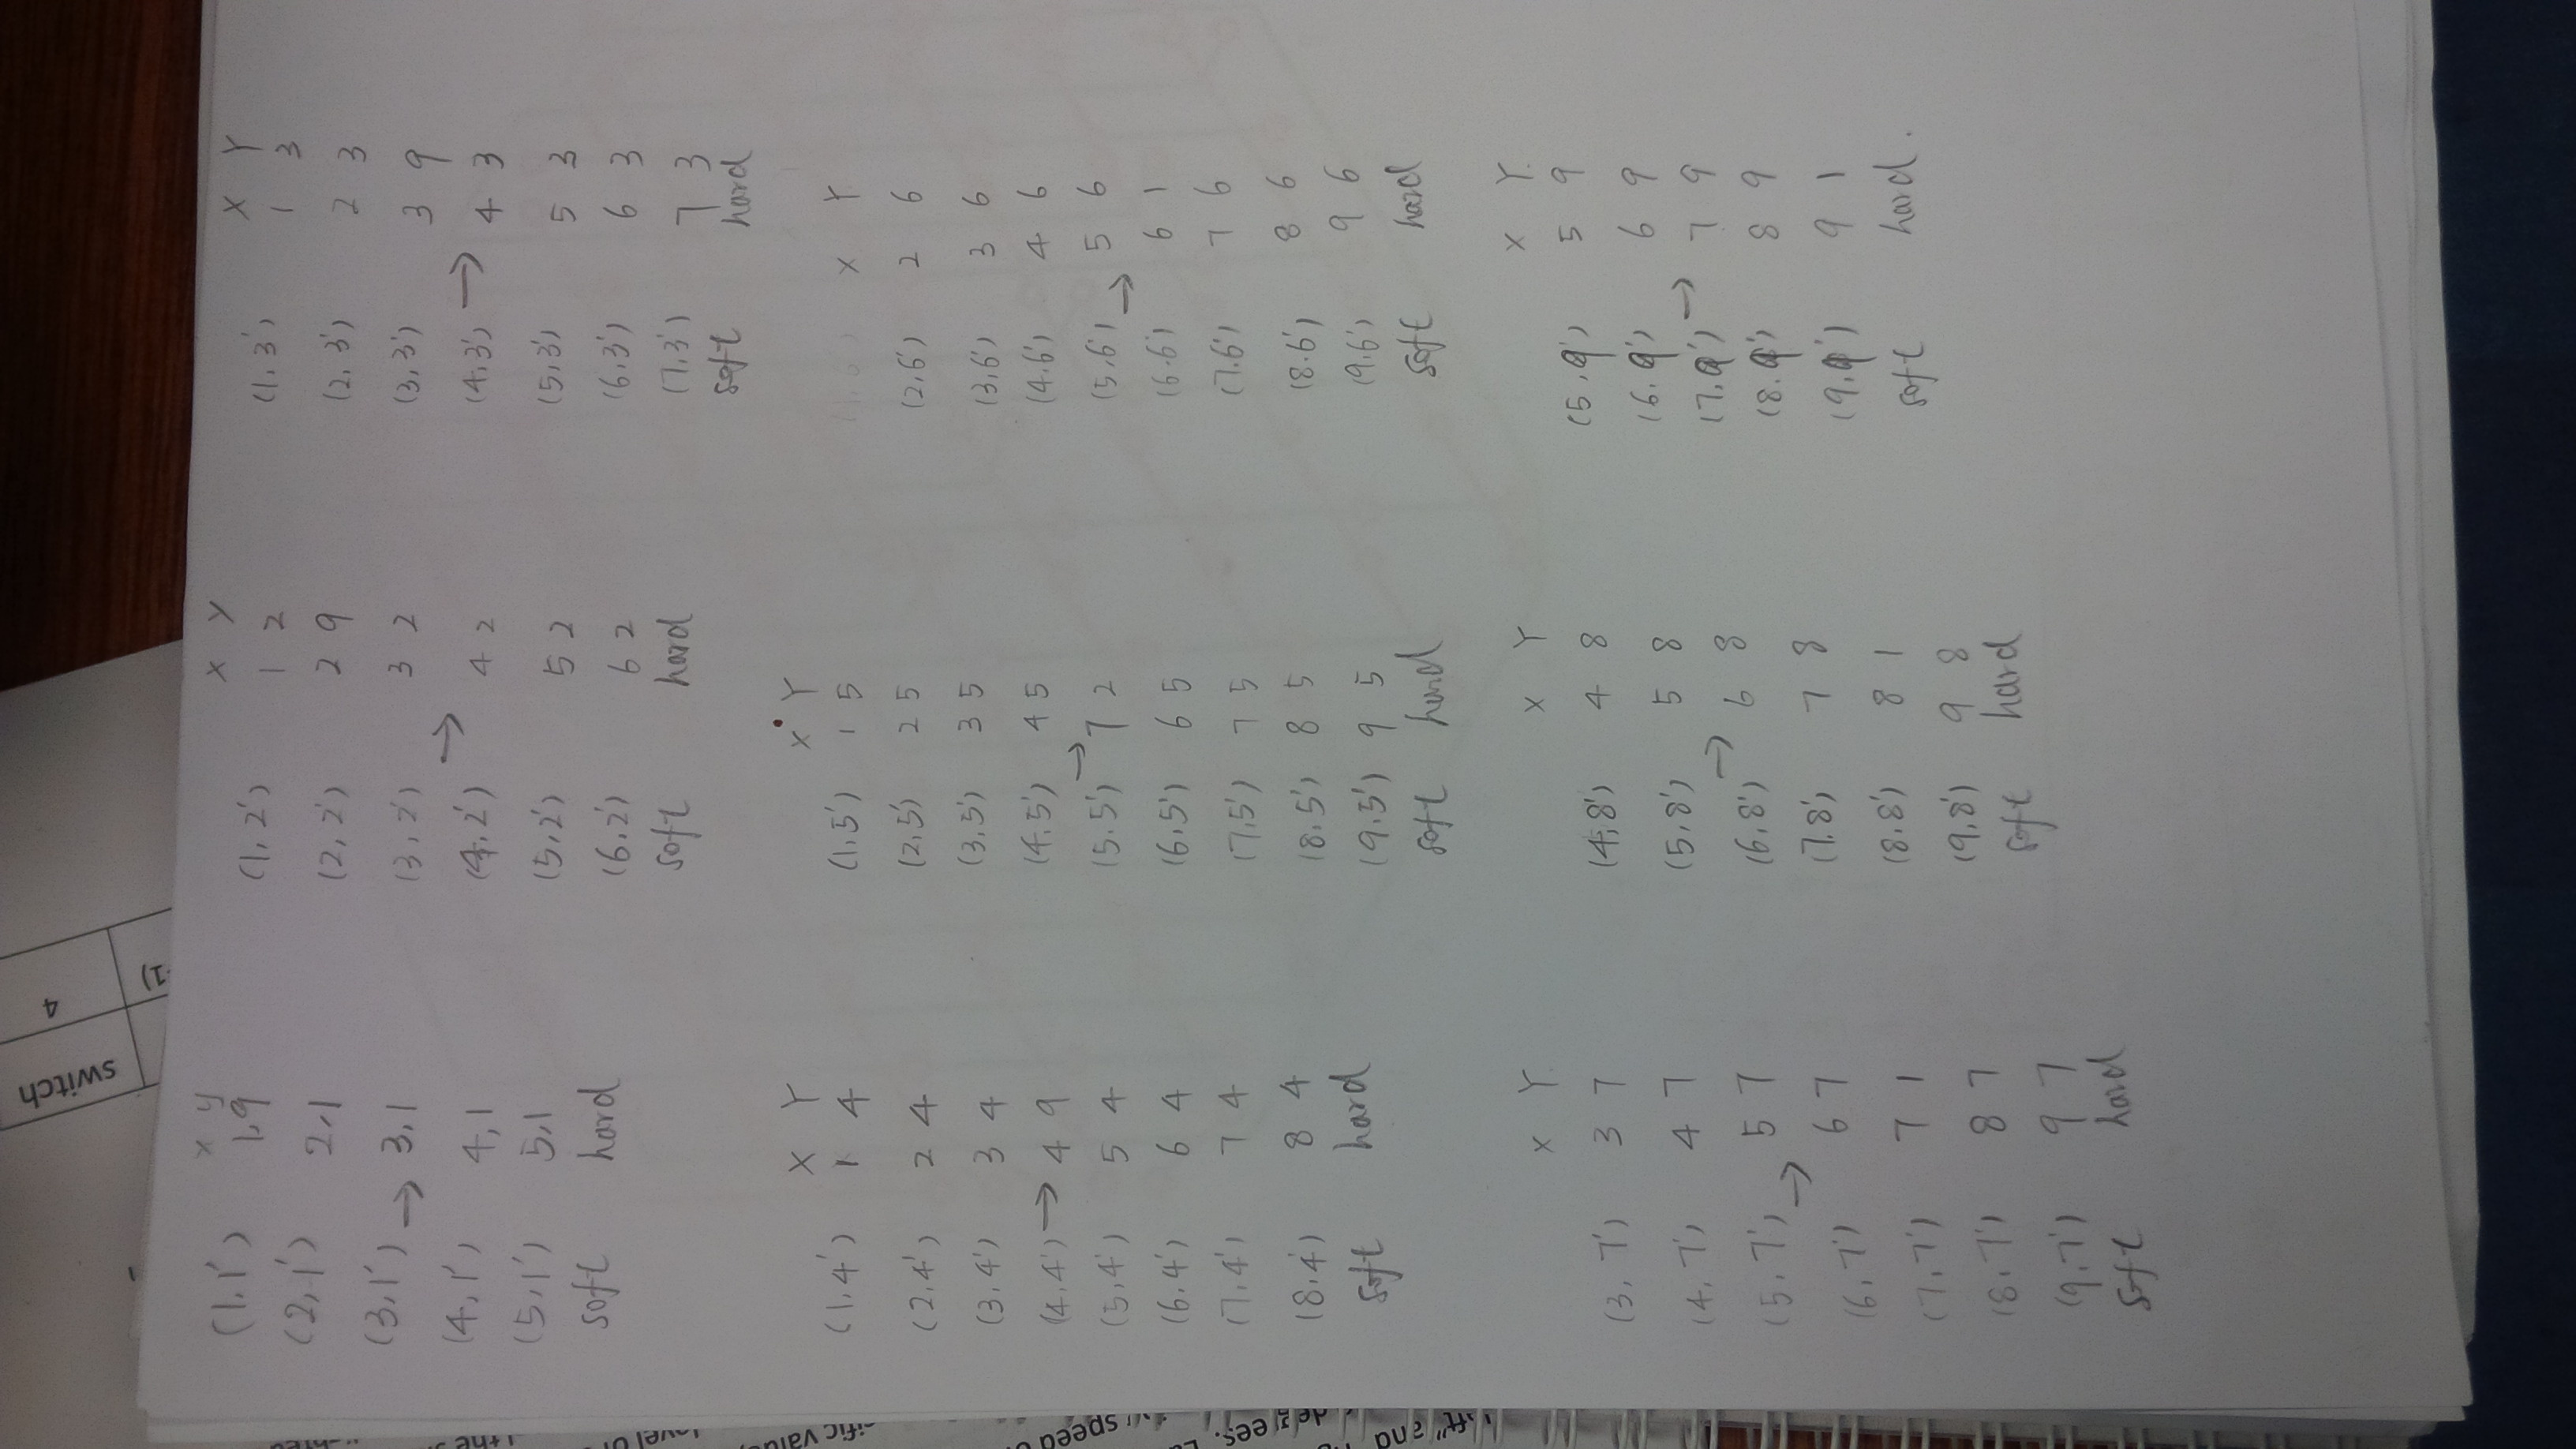 x y
(1,1') 1,9
(2,1') 2,1
(3,1') → 3,1
(4,1') 4,1
(5,1') 5,1
soft hard
X Y
(1,2') 1 2
(2,2') 2 9
(3,2') 3 2
(4,2') → 4 2
(5,2') 5 2
(6,2') 6 2
soft hard
X Y
(1,3') 1 3
(2,3') 2 3
(3,3') 3 9
(4,3') → 4 3
(5,3') 5 3
(6,3') 6 3
(7,3') 7 3
soft hard
X Y
(1,4') 1 4
(2,4') 2 4
(3,4') 3 4
(4,4') → 4 9
(5,4') 5 4
(6,4') 6 4
(7,4') 7 4
(8,4') 8 4
soft hard
X Y
(1,5') 1 5
(2,5') 2 5
(3,5') 3 5
(4,5') 4 5
(5,5') → 7 2
(6,5') 6 5
(7,5') 7 5
(8,5') 8 5
(9,5') 9 5
soft hard
X Y
(2,6') 2 6
(3,6') 3 6
(4,6') 4 6
(5,6') → 5 6
(6,6') 6 1
(7,6') 7 6
(8,6') 8 6
(9,6') 9 6
soft hard
X Y
(3,7') 3 7
(4,7') 4 7
(5,7') → 5 7
(6,7') 6 7
(7,7') 7 1
(8,7') 8 7
(9,7') 9 7
soft hard
X Y
(4,8') 4 8
(5,8') 5 8
(6,8') → 6 8
(7,8') 7 8
(8,8') 8 1
(9,8') 9 8
soft hard
X Y
(5,9') 5 9
(6,9') 6 9
(7,9') → 7 9
(8,9') 8 9
(9,9') 9 1
soft hard.
and
degrees.
speed
level
the
switch
1) 4